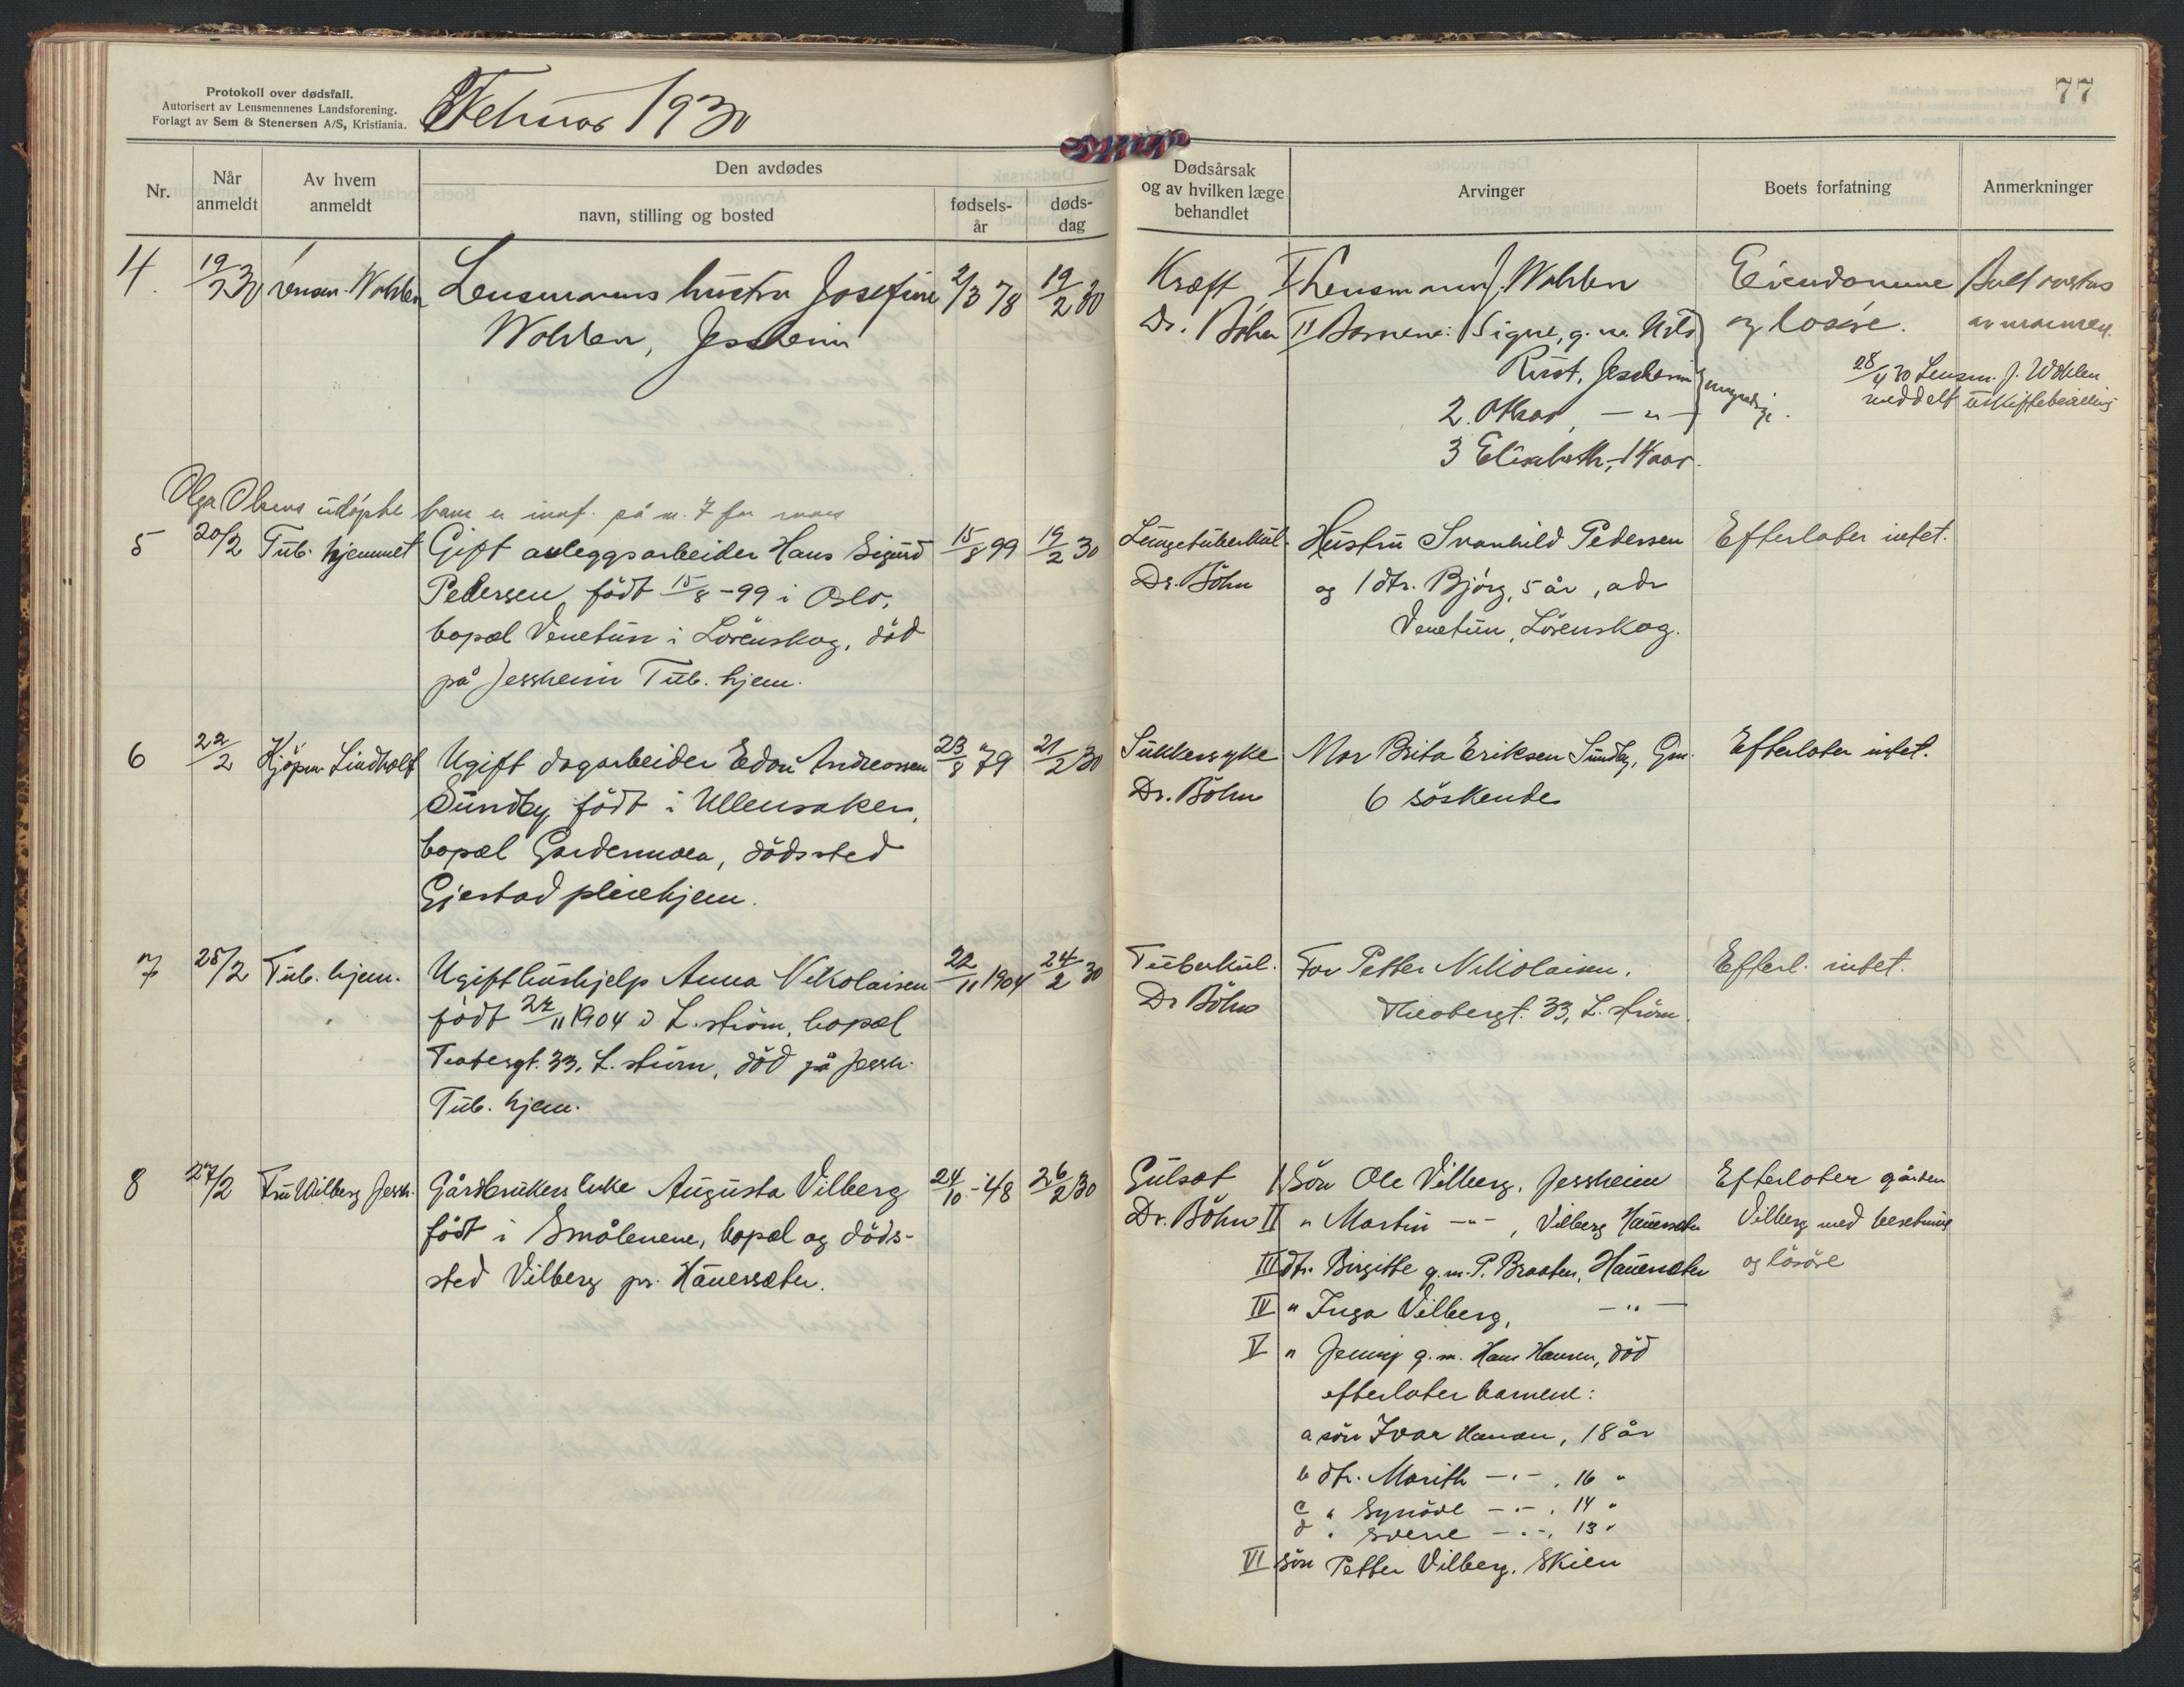 Protokoll over dødsfall.
Autorisert av Lensmennenes Landsforening.
Forlagt av Sem & Stenersen A/S, Kristiania.
Februar 1930
77
Nr.
Når anmeldt
Av hvem anmeldt
Den avdødes
navn, stilling og bosted
fødsels-år
døds-dag
Dødsårsak og av hvilken læge behandlet
Arvinger
Boets forfatning
Anmerkninger
4. 19/2 30 Lensm. Wohlen Lensmanns hustru Josefine 2/3 78 19/2 30
Wohlen, Jessheim
Kræft
Dr. Bøhn
I Lensmann J. Wohlen
II Barnene: 1 Signe, g.m. Nils
Rust, Jessheim
2. Othar, — " — } myndige.
3 Elisabeth, 14 aar.
Eiendomme
og løsøre.
Alt overtas
av mannen.
28/4 30 Lensm. J. Wohlen
meddelt uskiftebevilling
Olga Olsens udøpte barn er innf. på nr. 7 for mars
5 20/2 Tub. hjemmet Gift anleggsarbeider Hans Sigurd 15/8 99 19/2 30
Pedersen, født 15/8-99 i Oslo,
bopæl Venetun i Lørenskog, død
på Jessheim Tub. hjem.
Lungetuberkul.
Dr. Bøhn
Hustru Svanhild Pedersen
og 1 dtr. Bjørg, 5 år, adr
Venetun, Lørenskog.
Efterlater intet.
6 22/2 Kjøpm. Lindholt Ugift dagarbeider Edon Andreassen 23/8 79 21/2 30
Sundby, født i Ullensaker,
bopæl Gardermoen, dødssted
Gjestad pleiehjem.
Sukkersyke
Dr. Bøhn
Mor Brita Eriksen Sundby, Gm.
6 søskende
Efterlater intet.
7 25/2 Tub. hjem. Ugift hushjelp Anna Nikolaisen 22/11 1904 24/2 30
født 22/11 1904 i L. strøm, bopæl
Teatergt. 33, L. strøm, død på Jessh.
Tub. hjem.
Tuberkul.
Dr Bøhn
Far Petter Nikolaisen,
33, L. strøm.
Efterl. intet.
8 27/2 Fru Wilberg Jessh. Gårdbrukers enke Augusta Vilberg 24/10-48 26/2 30
født i Smålenene, bopæl og døds-
sted Vilberg pr. Hauerseter.
Gulsot
Dr. Bøhn
I Søn Ole Vilberg, Jessheim
II " Martin — " — , Vilberg Hauerseter
III dtr. Birgitte g.m. P. Braaten, Hauerseter
IV " Inga Vilberg, — " —
V " Jenny g.m. Hans Hansen, død
efterlater barnene:
a søn Ivar Hansen, 18 år
b dtr. Marith — " — , 16 "
c " Synøve — " — , 14 "
d " Sverre — " — , 13 "
VI Søn Petter Vilberg, Skien
Efterlater gården
Vilberg med besetning
og løsøre